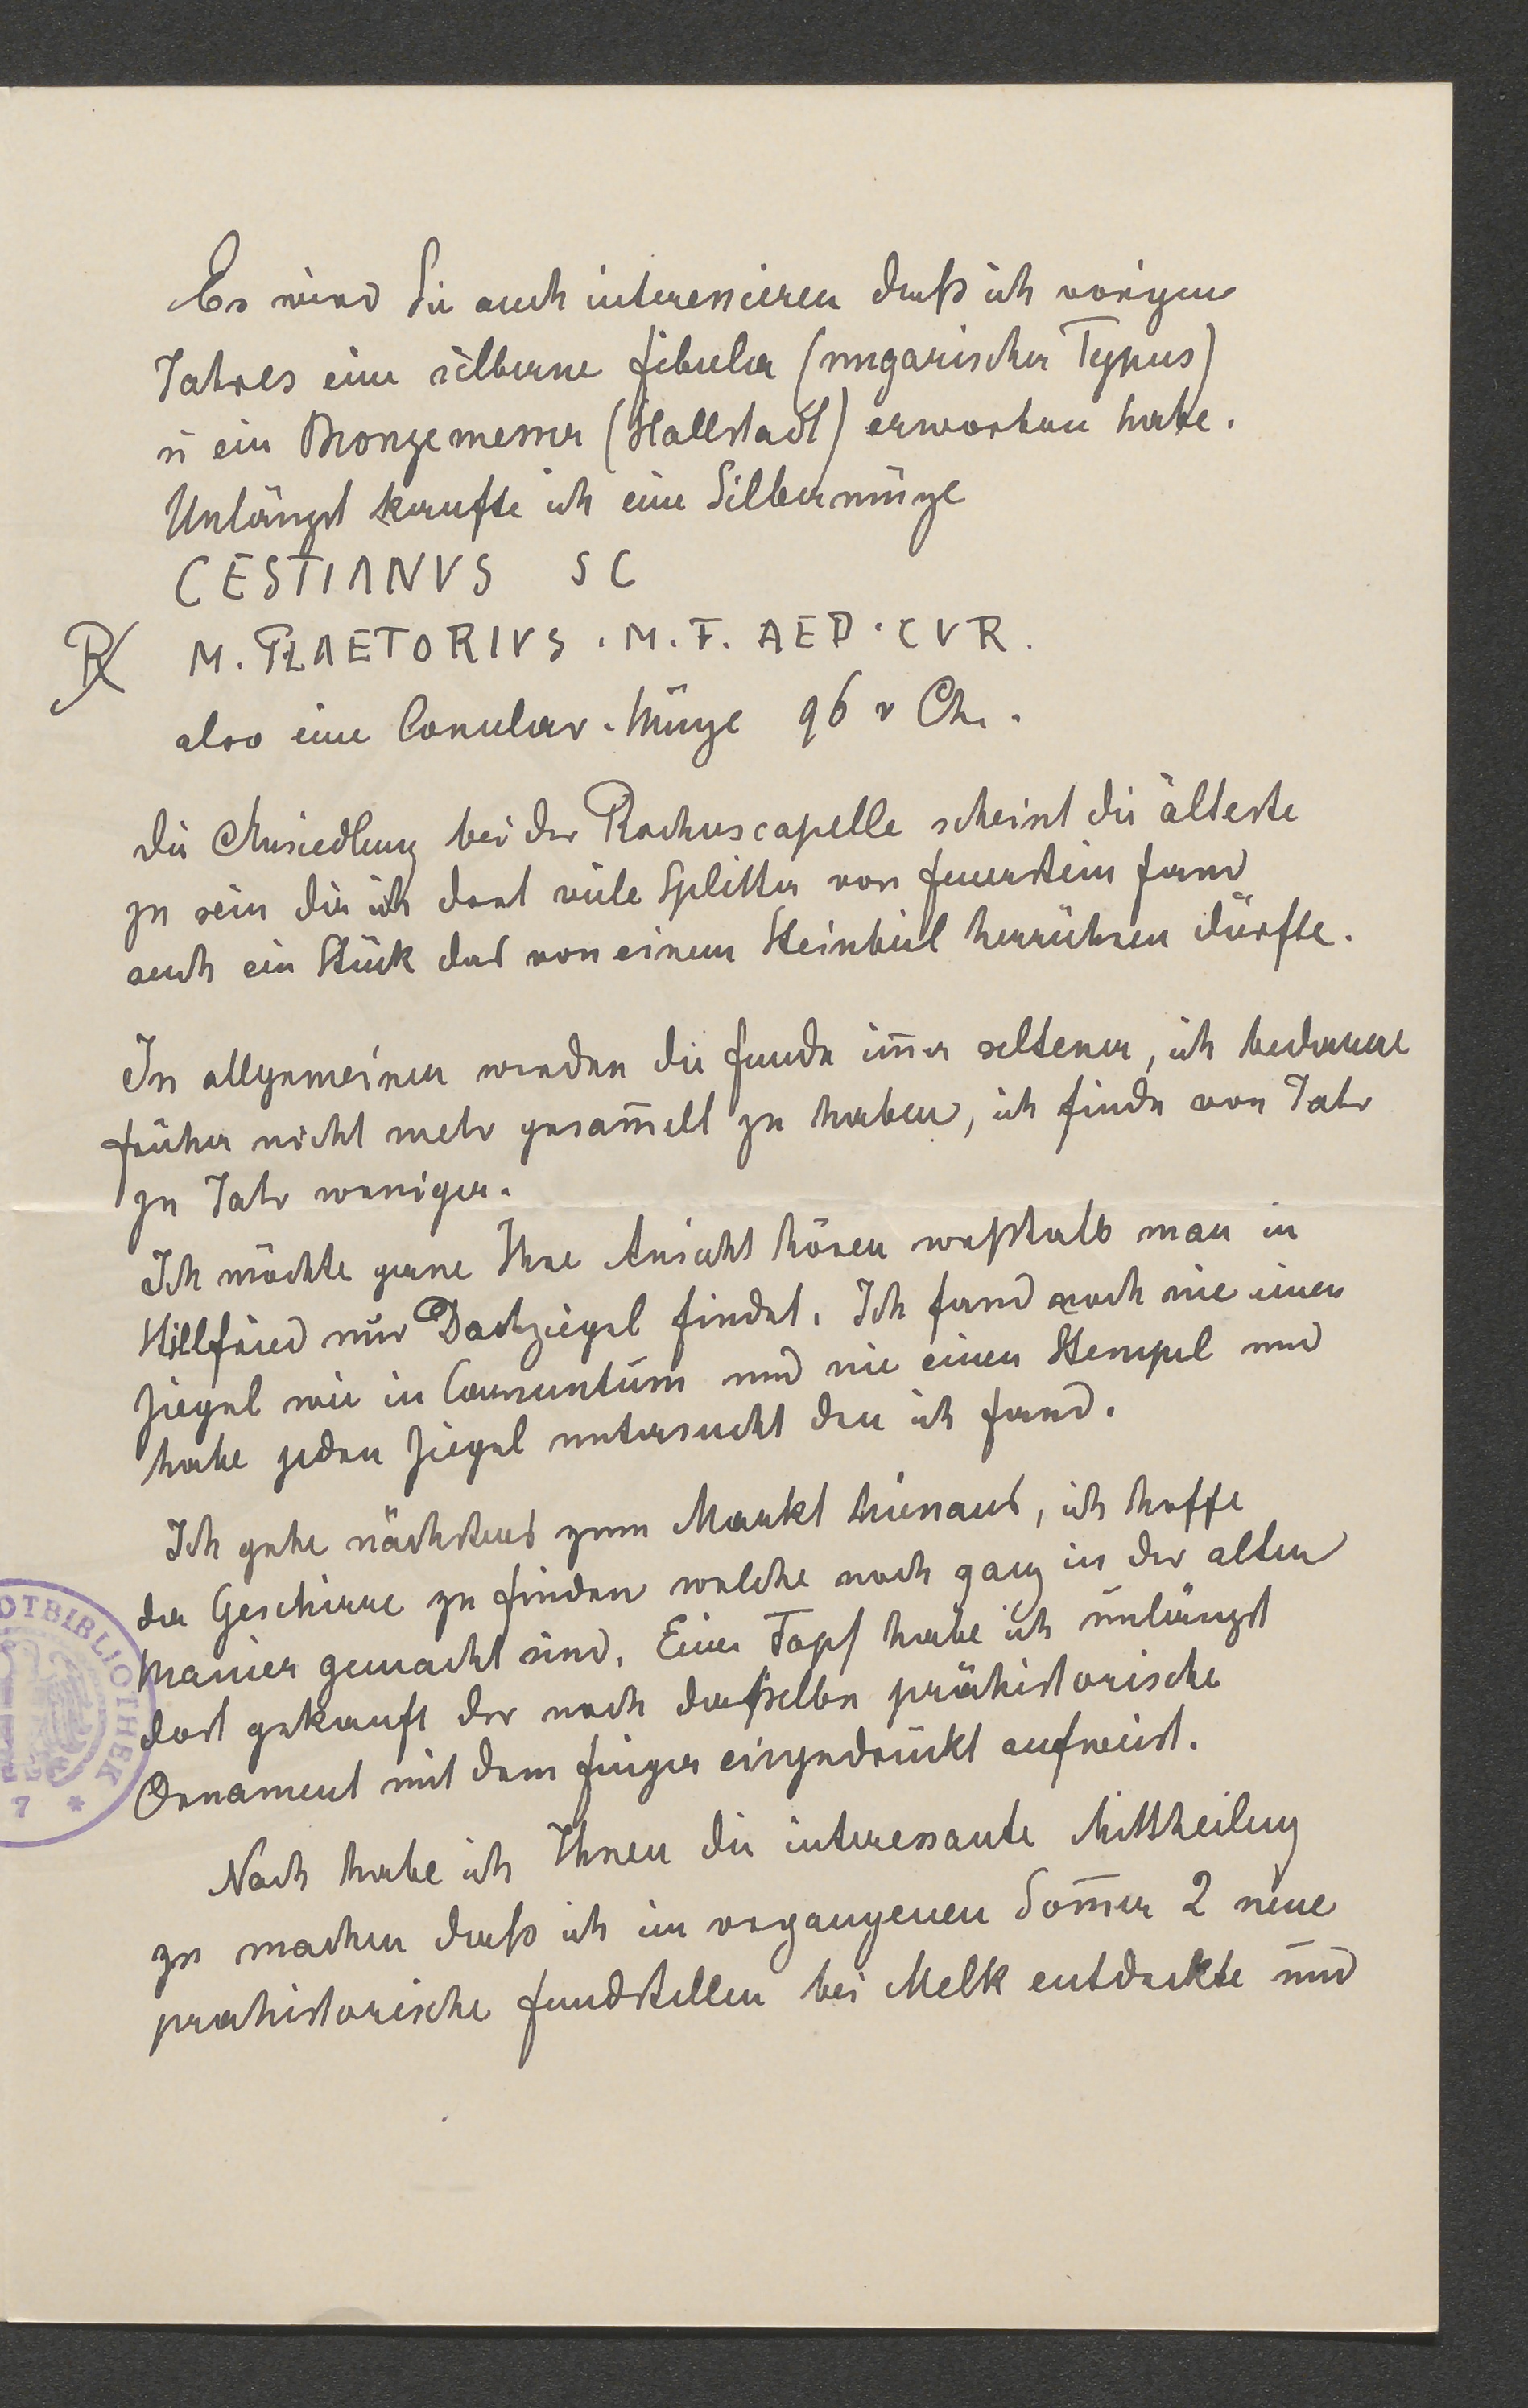 Es wird Sie auch interessieren daß ich vorigen
Jahres eine silberne Fibula (ungarischer Typus)
u ein Bronzemesser (Hallstadt) erworben habe.
Unlängst kaufte ich eine Silbermünze
CESTIANVS SC
R M. PLAETORIVS . M. F. AED . CVR.
also eine Consular-Münze 96 v Chr.
die Ansiedlung bei der Rochuscapelle scheint die älteste
zu sein da ich dort viele Splitter von Feuerstein fand
auch ein Stück das von einem Steinbeil herrühren dürfte.
Im allgemeinen werden die Funde im̅er seltener, ich bedauere
früher nicht mehr gesam̅elt zu haben, ich finde von Jahr
zu Jahr weniger.
Ich möchte gerne Ihre Ansicht hören weßhalb man in
Hillfried nur Dachziegel findet. Ich fand noch nie einen
Ziegel wie in Carnuntum und nie einen Stempel und
habe jeden Ziegel untersucht den ich fand.
Ich gehe nächstens zum Markt hinaus, ich hoffe
da Geschirre zu finden welche noch ganz in der alten
Manier gemacht sind. Einen Topf habe ich unlängst
dort gekauft der noch dasselbe prähistorische
Ornament mit dem Finger eingedrückt aufweist.
Noch habe ich Ihnen die interessante Mittheilung
zu machen daß ich im vergangenen Som̅er 2 neue
prahistorische Fundstellen bei Melk entdeckte und
OTBIBLIOTHEK
7 *